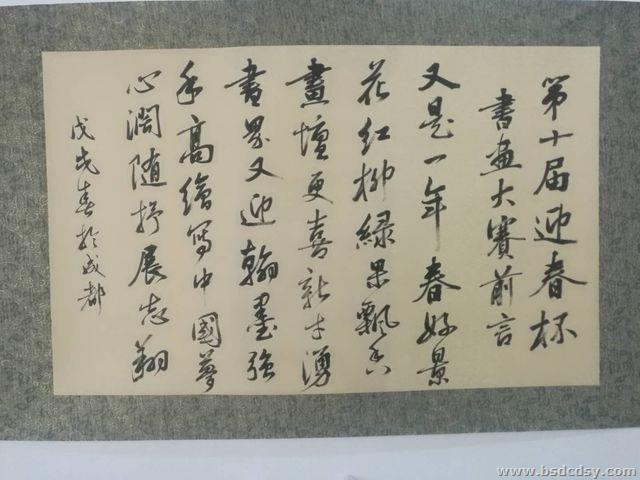 第十届迎春杯
書画大賽前言
又是一年春好景
花红柳緑果飄香
畫壇更喜新才湧
畫界又迎翰墨强
手高繪寫中國夢
心濶随抒展志翔
戊戌春於成都
www.bsdcdsy.com